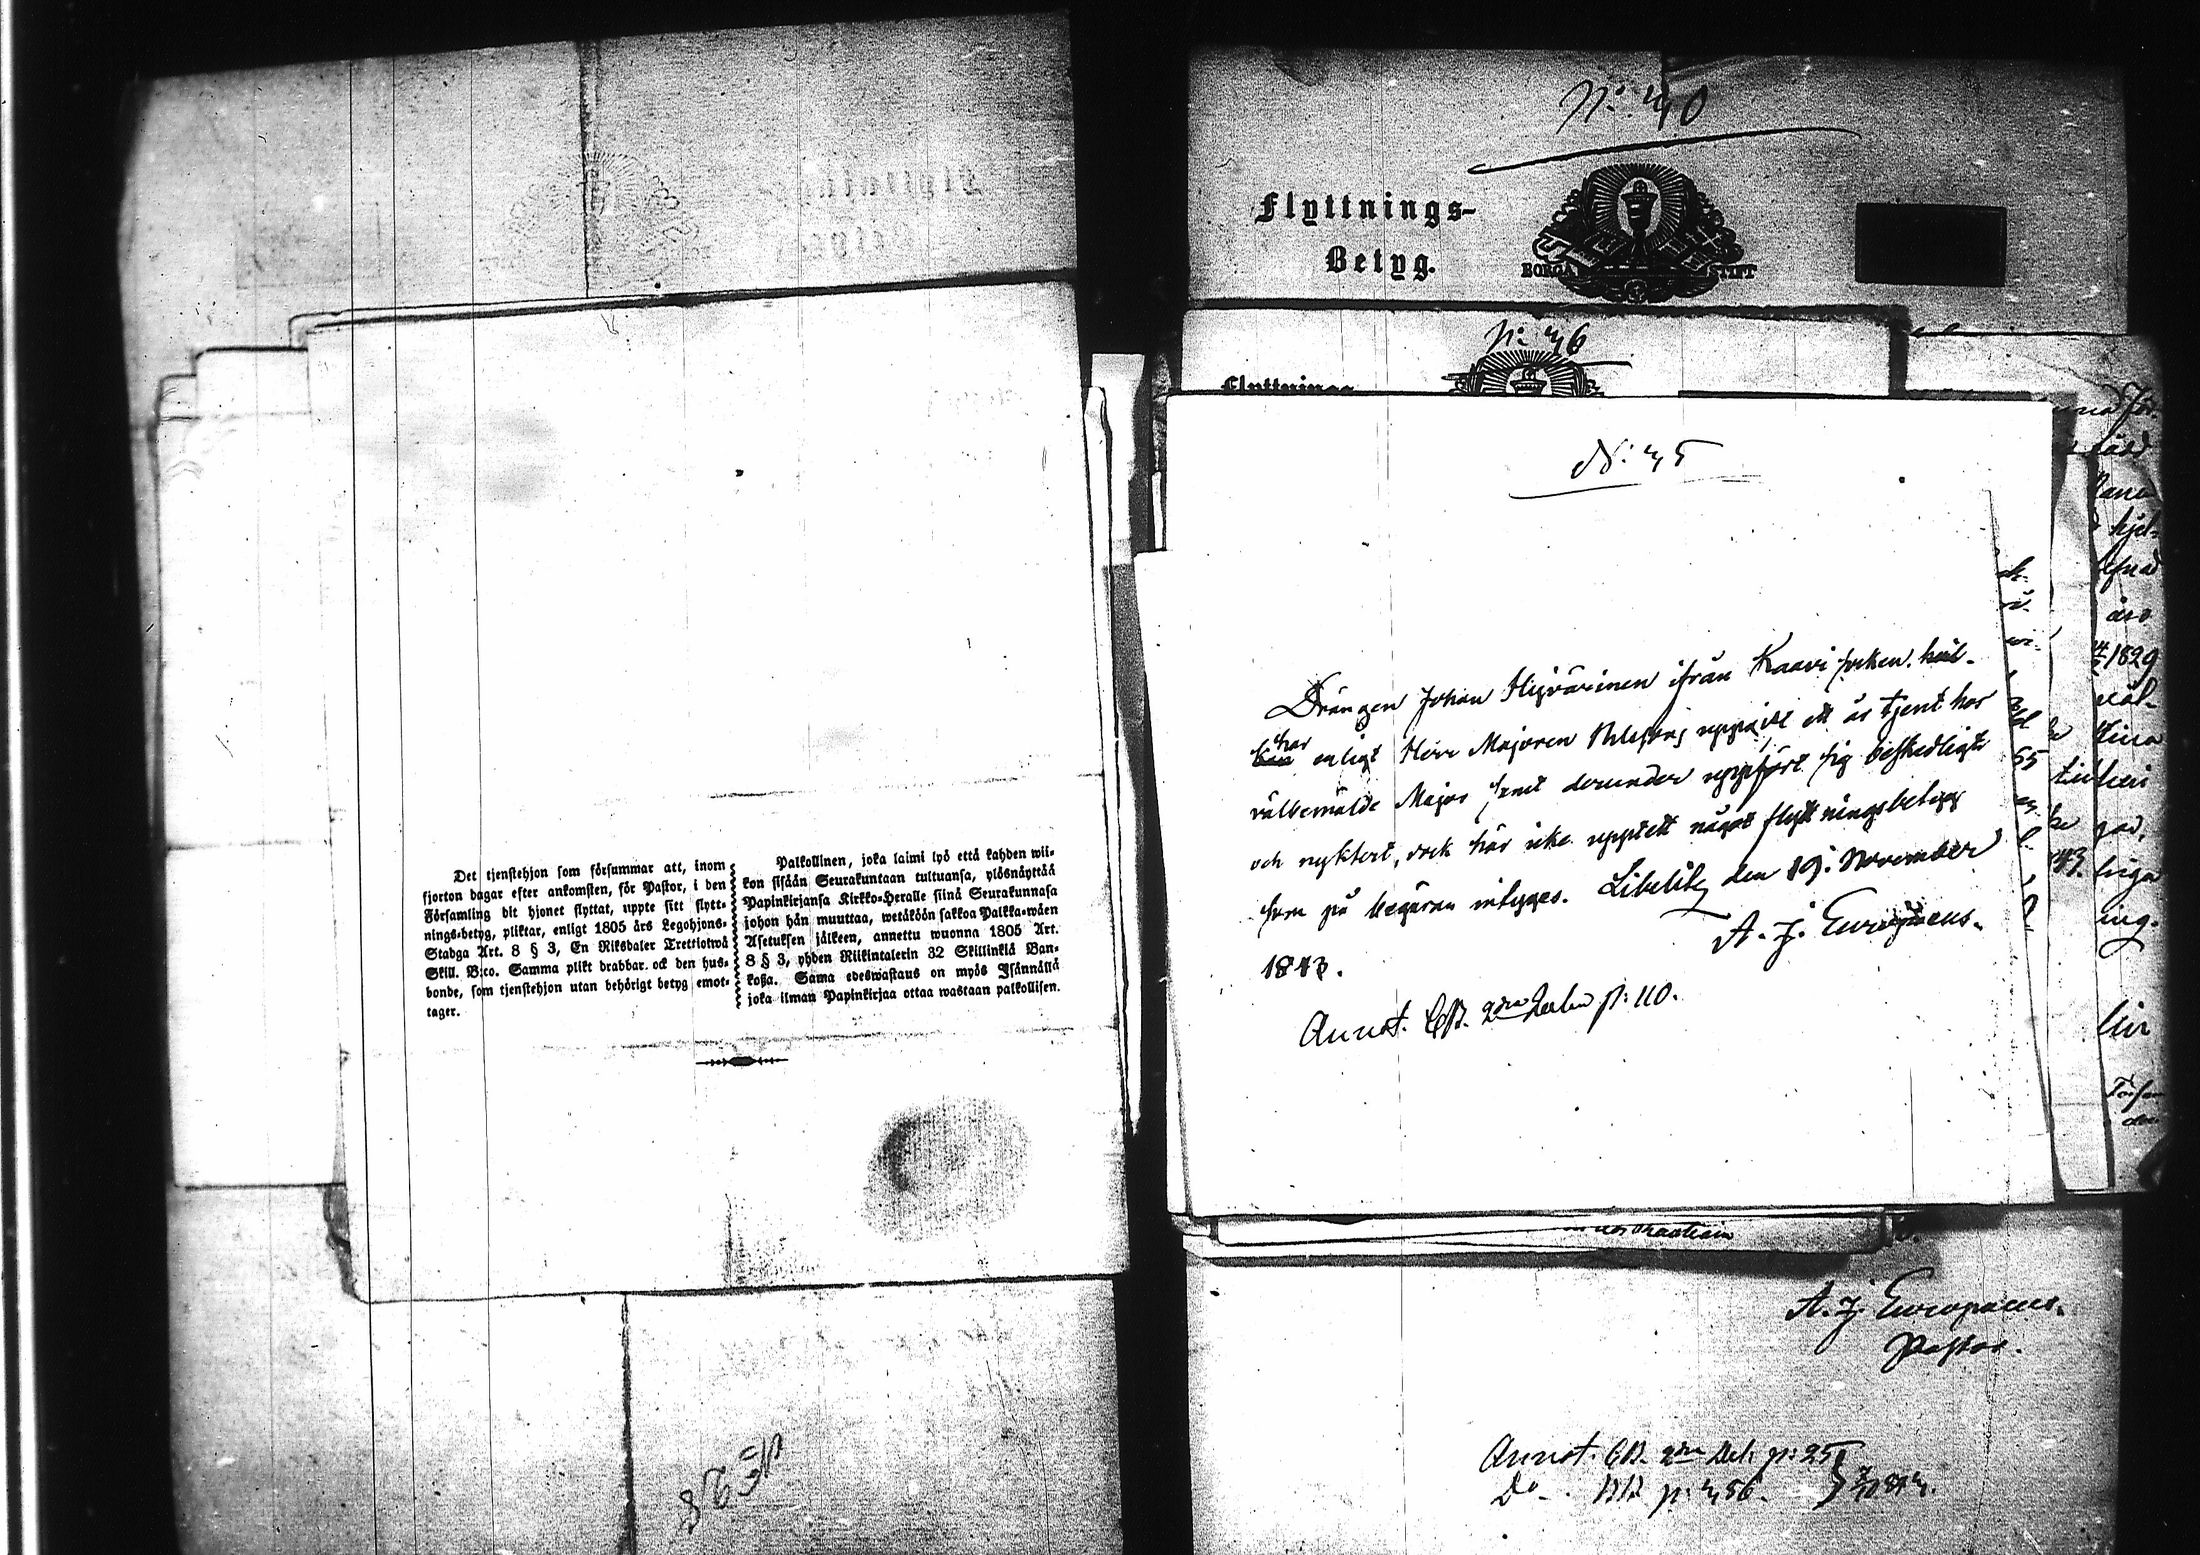 Det tjenstehjon som försummar att, inom
fjorton dagar efter ankomsten, för Pastor, i den
Församling dit hjonet flyttat, uppte sitt flytt-
nings-betyg, pliktar, enligt 1805 års Legohjons-
Stadga Art. 8 § 3, En Riksdaler Trettiotwå
Skill. B:co. Samma plikt drabbar ock den hus-
bonde, som tjenstehjon utan behörigt betyg emot-
tager.
Palkollinen, joka laimi lyö että kahden wii-
kon sisään Seurakuntaan tultuansa, ylösnäyttää
Papinkirjansa Kirkko-Heralle siinä Seurakunnasa
johon hän muuttaa, wetäköön sakkoa Palkka-wäen
Asetuksen jälkeen, annettu wuonna 1805 Art.
8 § 3, yhden Riikintalerin 32 Skillinkiä Ban-
koßa. Sama edeswastaus on myös Isännällä
joka ilman Papinkirjaa ottaa wastaan palkollisen.
N: 40
Flyttnings-
Betyg.
BORGÅ STIFT
N: 46
Flyttnings
N: 45
Drängen Johan Hyvärinen ifrån Kaavi socken
har enligt Herr Majoren uppgift ett år tjent hos
välbemälde Major samt derunder uppfört sig beskedligt
och nyktert, dock här icke upptett något flyttningsbetyg
som på begäran intygas. Libelitz den 19. November
1843.
A. J. Europaeus.
Annot. CB. 2dra Delen p: 110.
1829
A. J. Europaeus.
Pastor.
Annot. CB. 2dra Del. p: 25
Do BB p: 456.